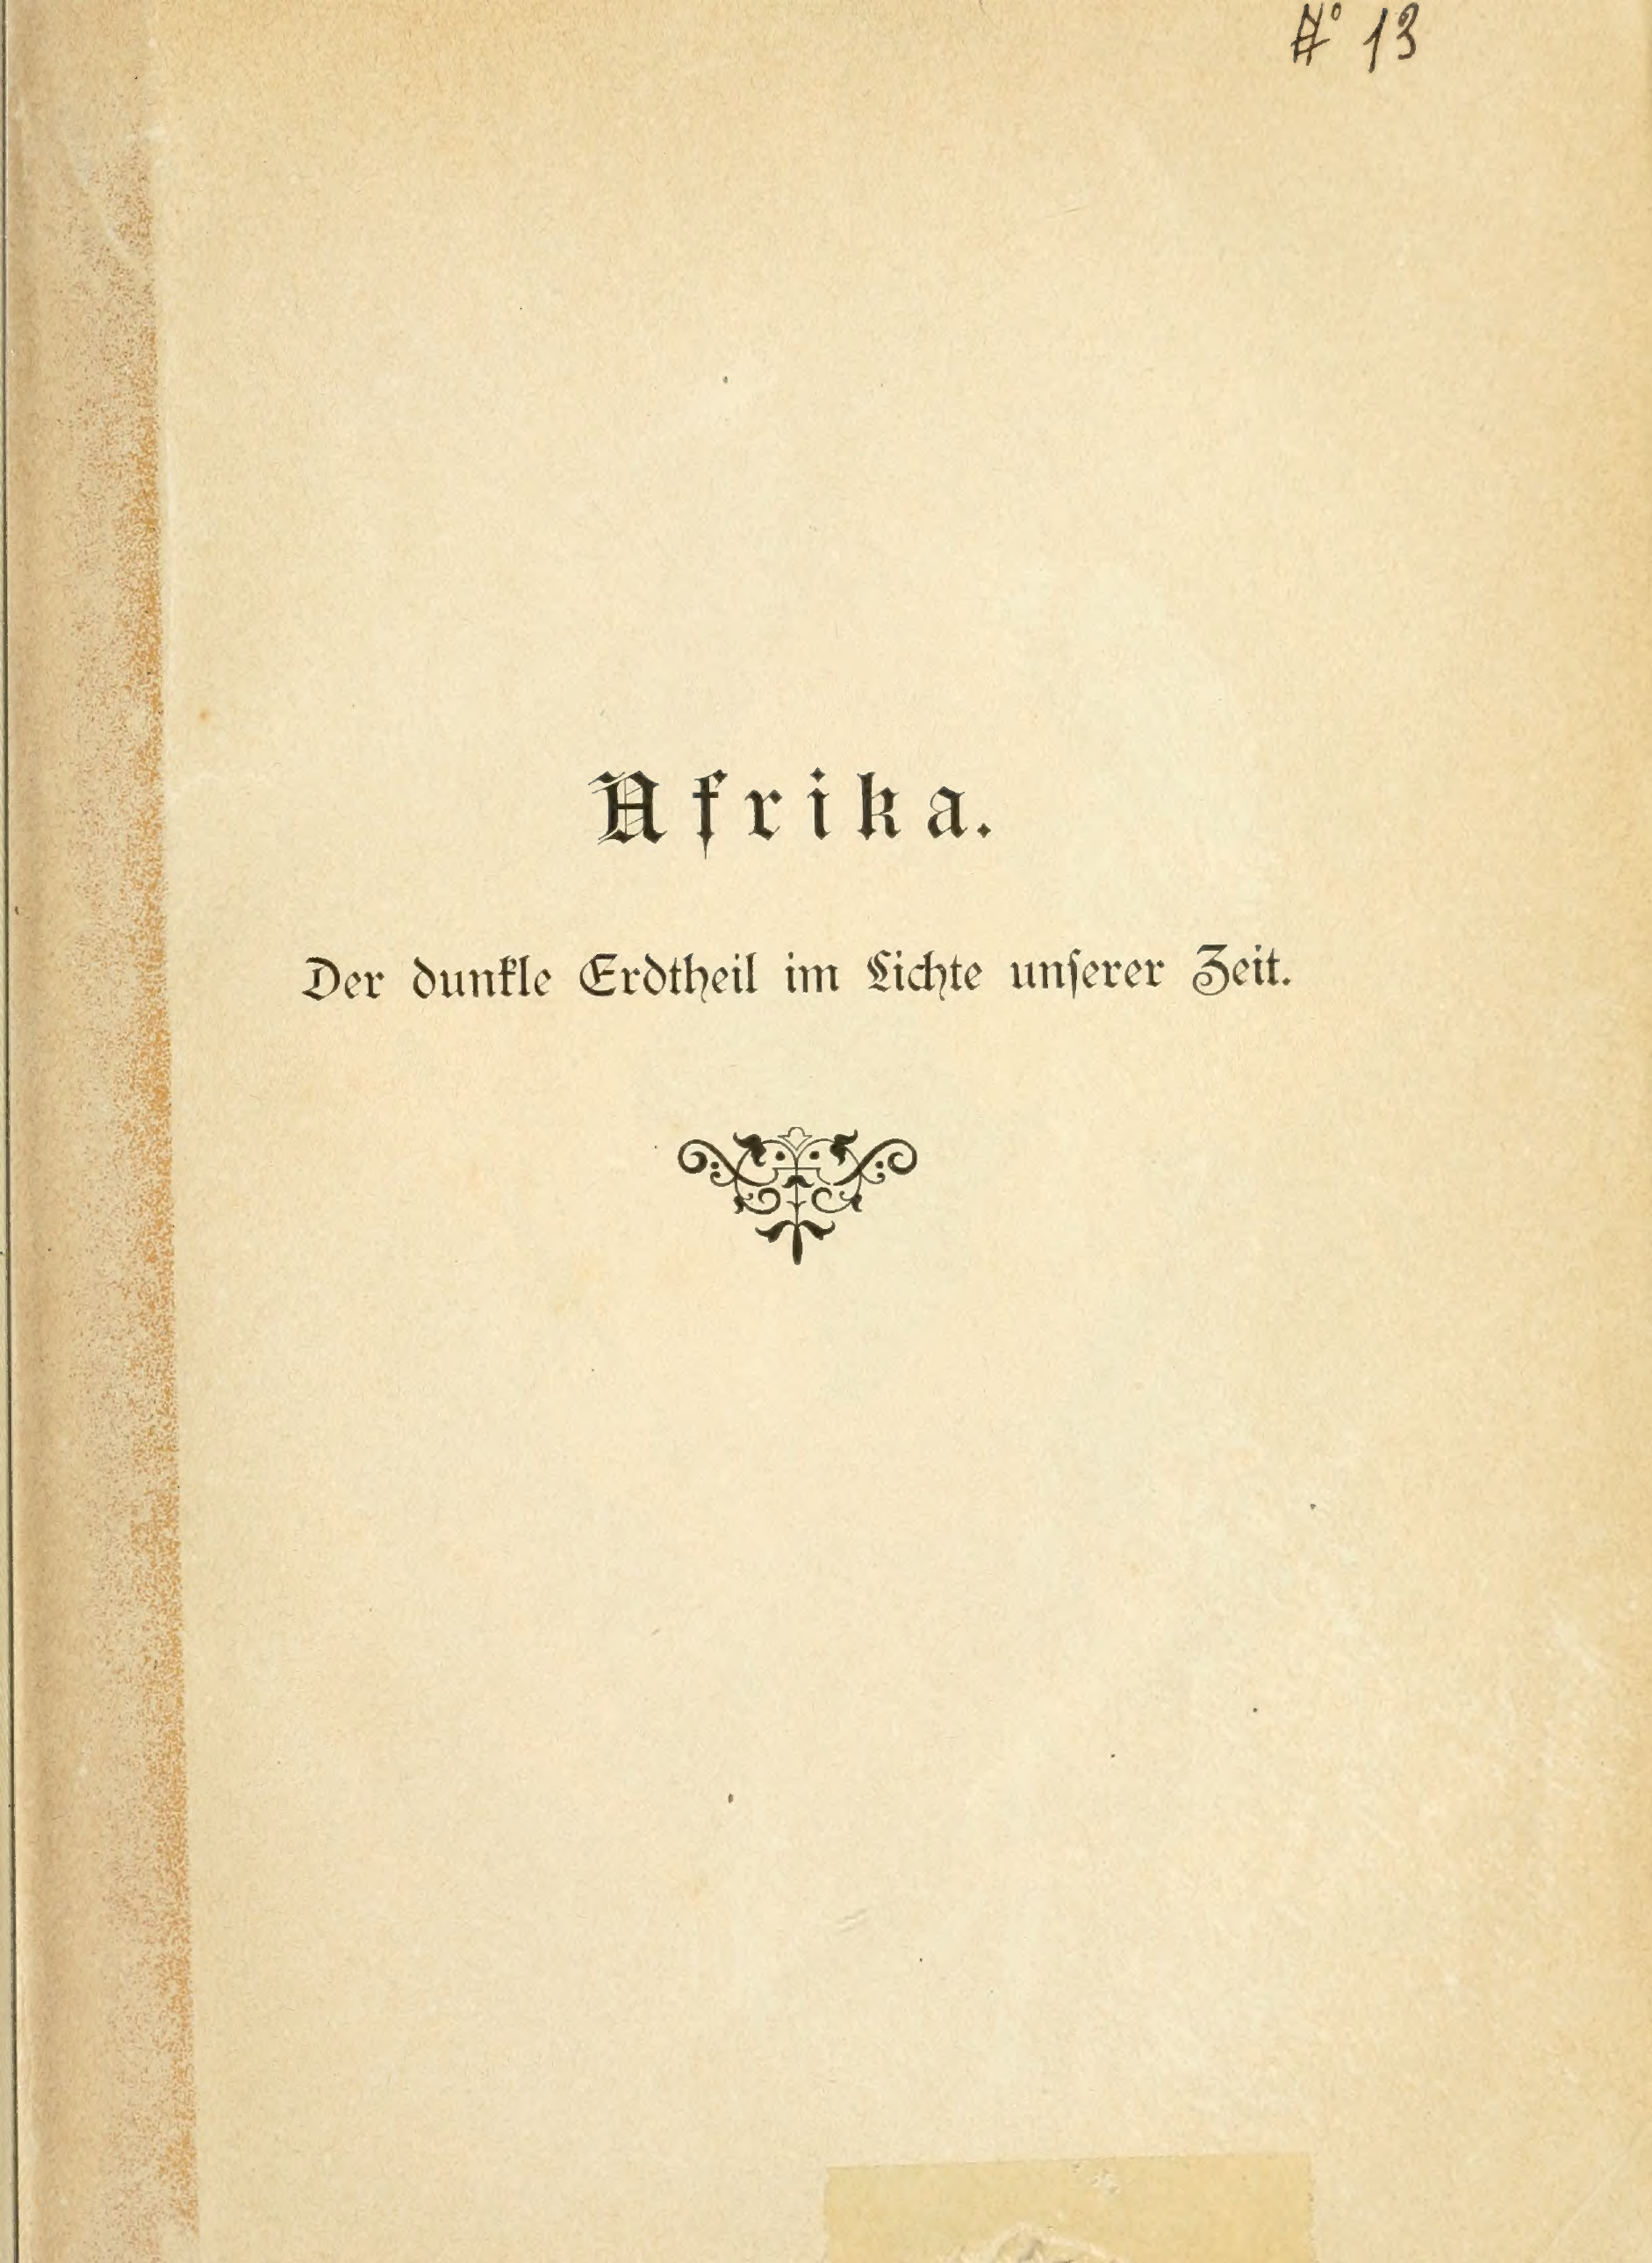 N° 13
Afrika.
Der dunkle Erdtheil im Lichte unſerer Zeit.